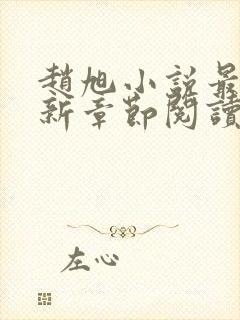 趙旭小説最
新章節閱讀
左心